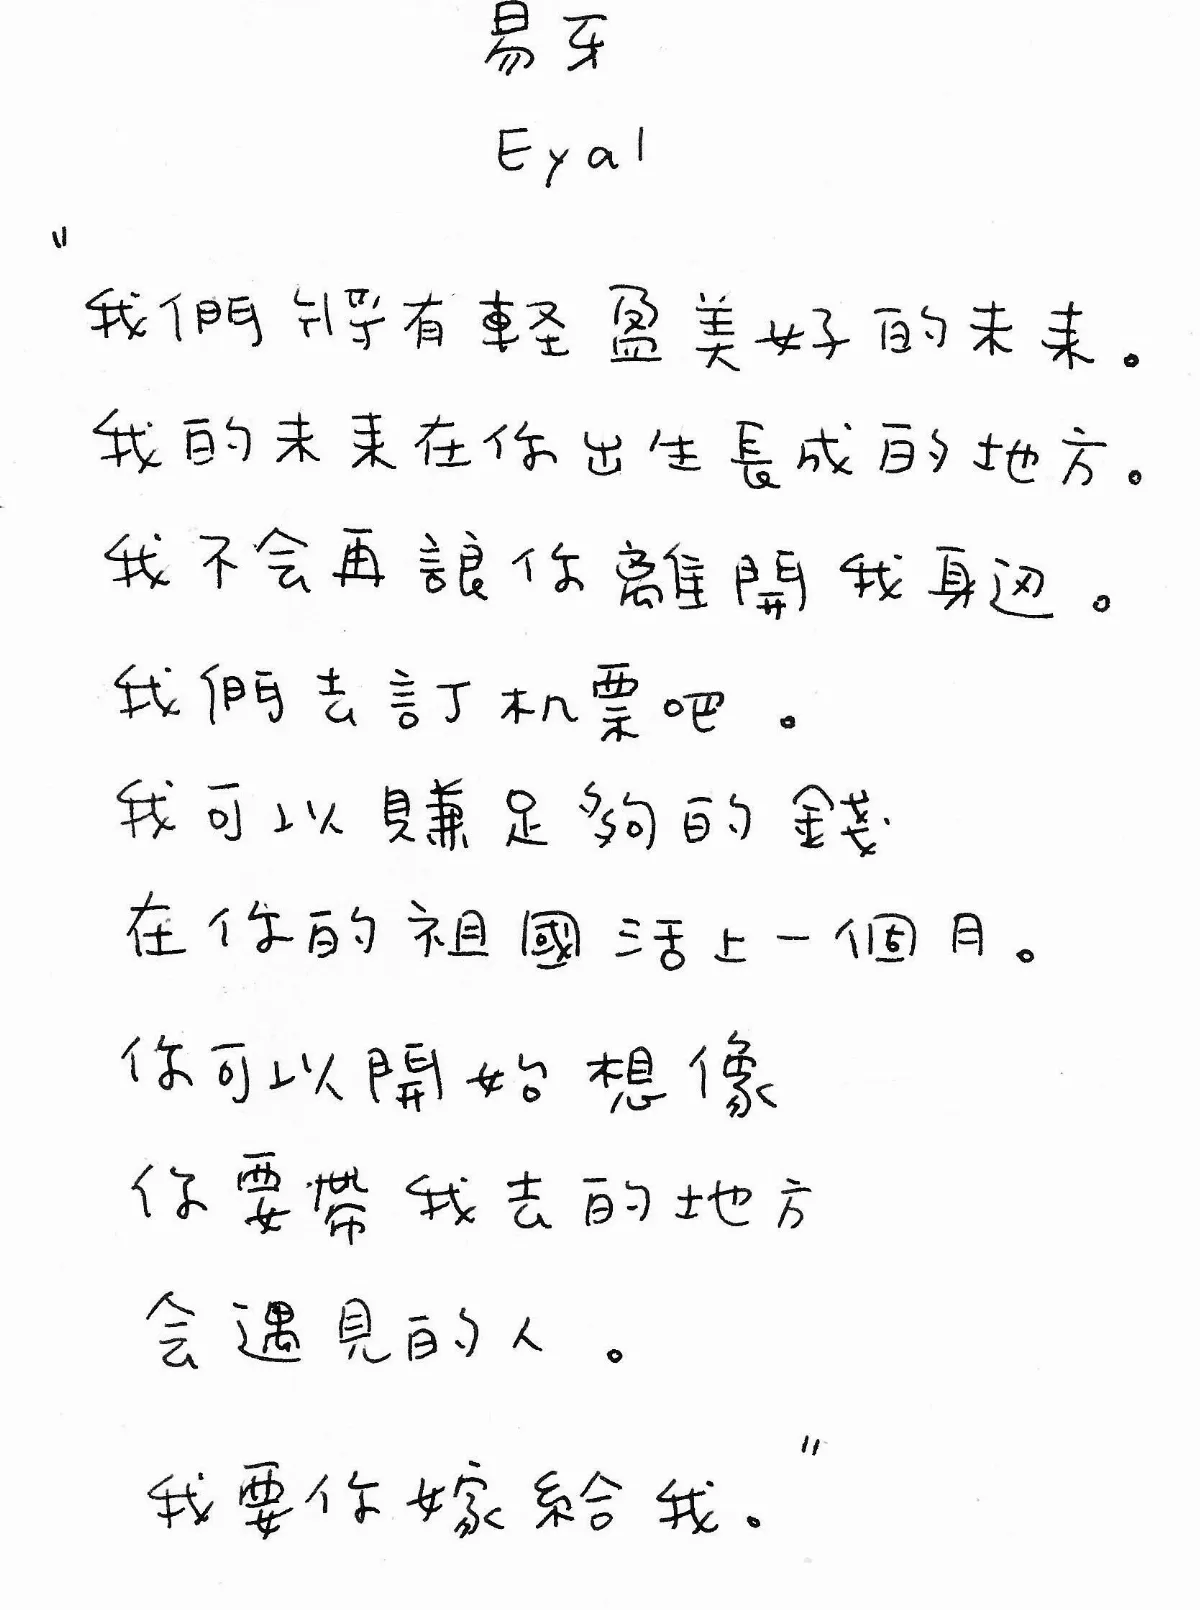 易牙
Eyal
"
我們將有輕盈美好的未来。
我的未来在你出生長成的地方。
我不会再讓你離開我身边。
我們去訂机票吧。
我可以賺足夠的錢
在你的祖國活上一個月。
你可以開始想像
你要帶我去的地方
会遇見的人。
我要你嫁給我。"